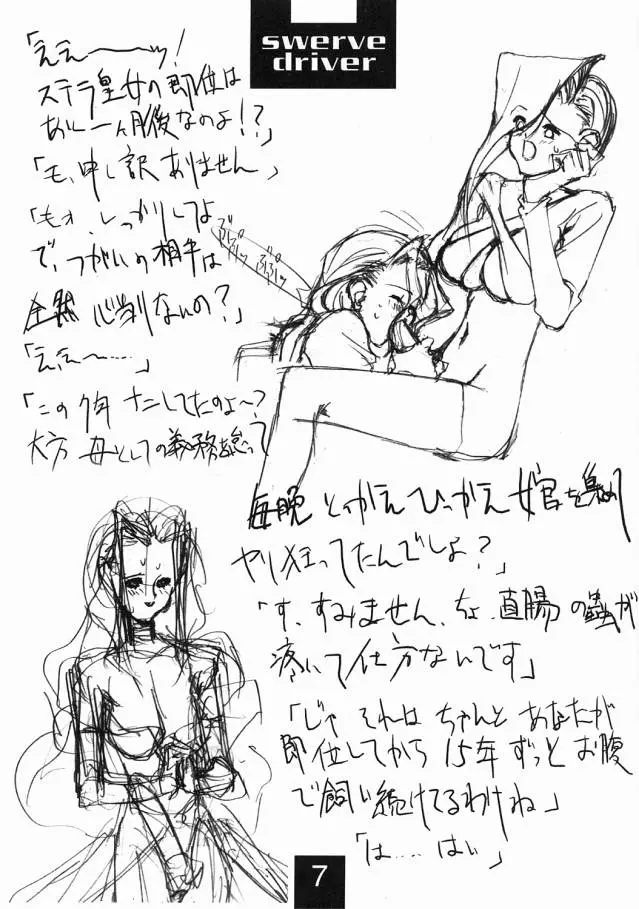 swerve
driver
「ええーーーッ!
ステラ皇女の即位は
あと一ヶ月後なのよ!?」
「も、申し訳ありません」
「もォ、しっかりしてよ
で、つがいの相手は
全然 心当りないの?」
「ええ〜……」
「この7年 ナニしてたのよ〜?
大方 母としての義務を怠って
毎晩 とっかえひっかえ 女官を集め
ヤリ狂ってたんでしょ?」
「す、すみません、ちょ、直腸の蟲が
疼いて仕方ないです」
「じゃ それは ちゃんと あなたが
即位してから 15年 ずっと お腹
で飼い続けてるわけね」
「は……はい」
7